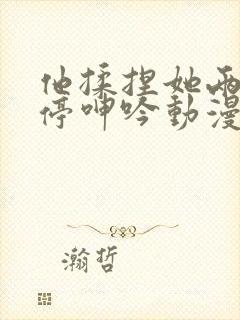 他揉捏她两
停呻吟動漫
瀚哲